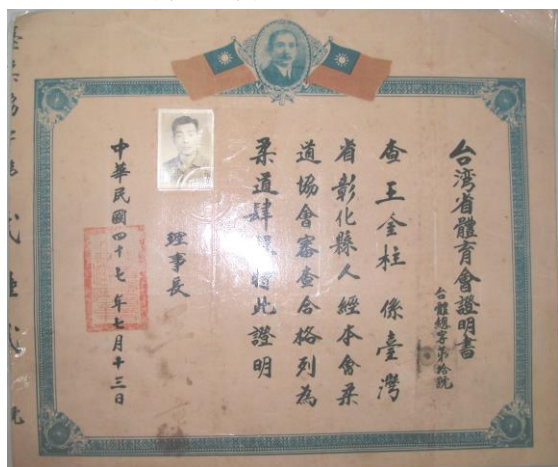 台湾省體育會證明書
台體總字第拾號
查王金柱係臺灣
省彰化縣人經本會柔
道協會審查合格列為
柔道肆段特此證明
理事長
中華民國四十七年七月十三日